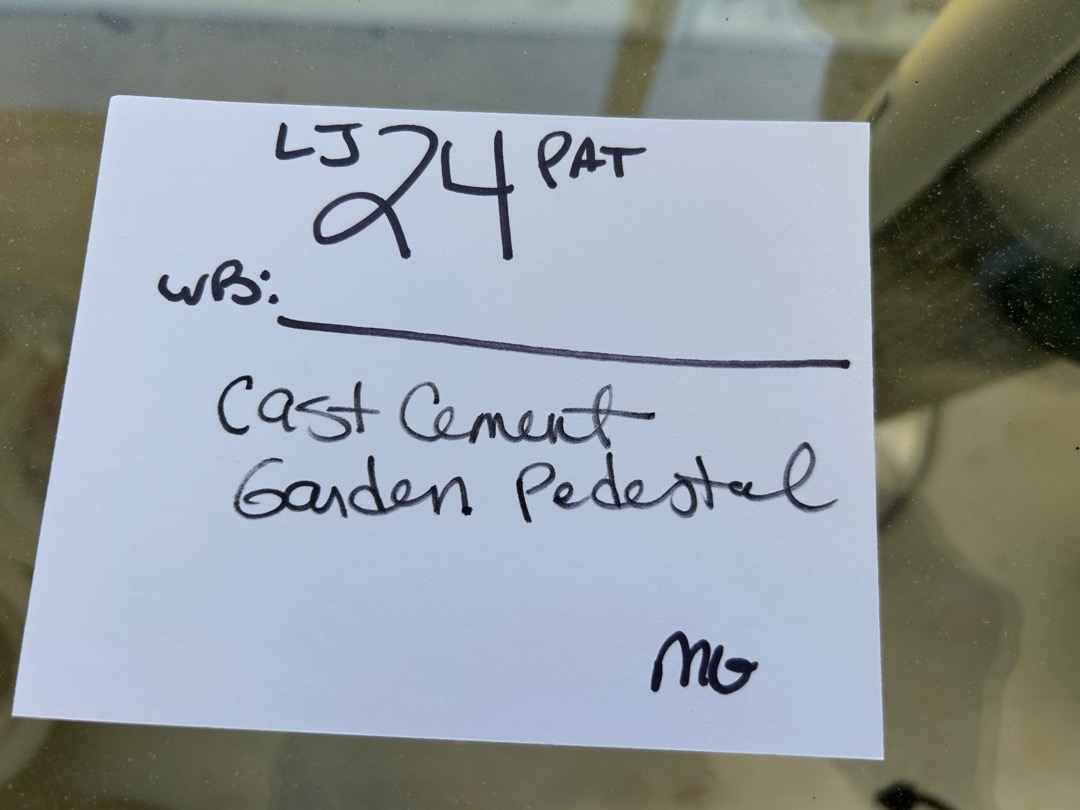 LJ 24 PAT
WB:
Cast Cement
Garden Pedestal
MG